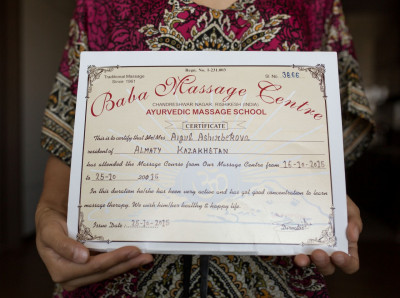 Regn. No. 3.231.097
Traditional Massage
Since 1981
Sl. No. 3866
Baba Massage Centre
CHANDRESHWAR NAGAR, RISHIKESH (INDIA)
AYURVEDIC MASSAGE SCHOOL
CERTIFICATE
This is certify that Mr/Mrs. Aigul Ashirbekova
resident of ALMATY KAZAKHSTAN
has attended the Massage Course from Our Massage Centre from 16-10-2025
to 25-10
In this duration he/she has been very active and has got good concentration to learn
massage therapy. We wish her/him healthy & happy life.
Issue Date : 25-10-2025
Director